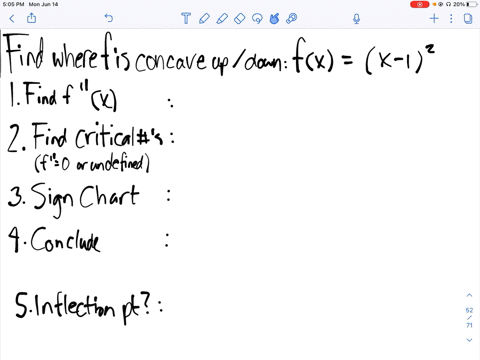 5:05 PM Mon Jun 14
20%
Find where f is concave up/down: f(x) = (x-1)²
1. Find f"(x) :
2. Find critical #'s :
(f"=0 or undefined)
3. Sign Chart :
4. Conclude :
5. Inflection pt? :
52
/
71